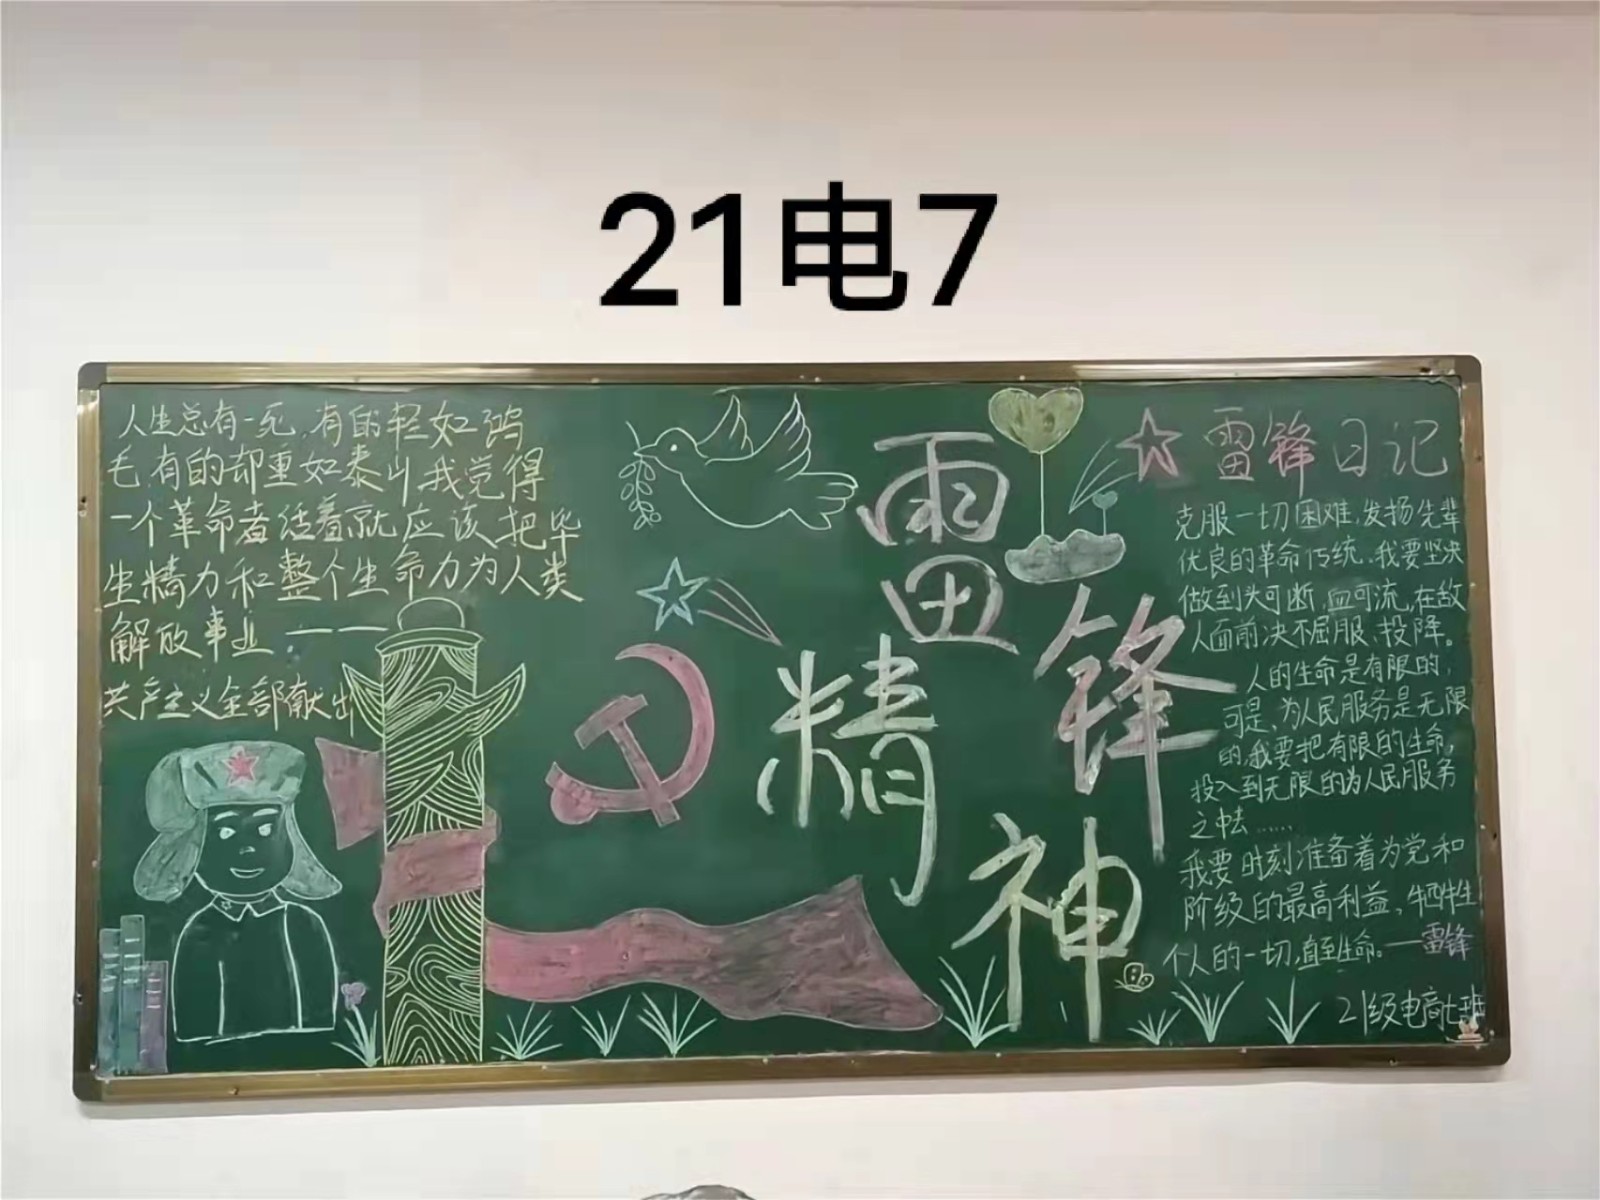 21电7
人生总有一死,有的轻如鸿
毛,有的却重如泰山,我觉得
一个革命者活着就应该把毕
生精力和整个生命力为人类
解放事业——
共产主义全部献出
雷锋
精神
雷锋日记
克服一切困难,发扬先辈
优良的革命传统.我要坚决
做到头可断,血可流,在敌
人面前决不屈服、投降。
人的生命是有限的,
可是、为人民服务是无限
的,我要把有限的生命,
投入到无限的为人民服务
之中去……
我要时刻准备着为党和
阶级的最高利益,牺牲
个人的一切,直至生命。——雷锋
21级电商七班